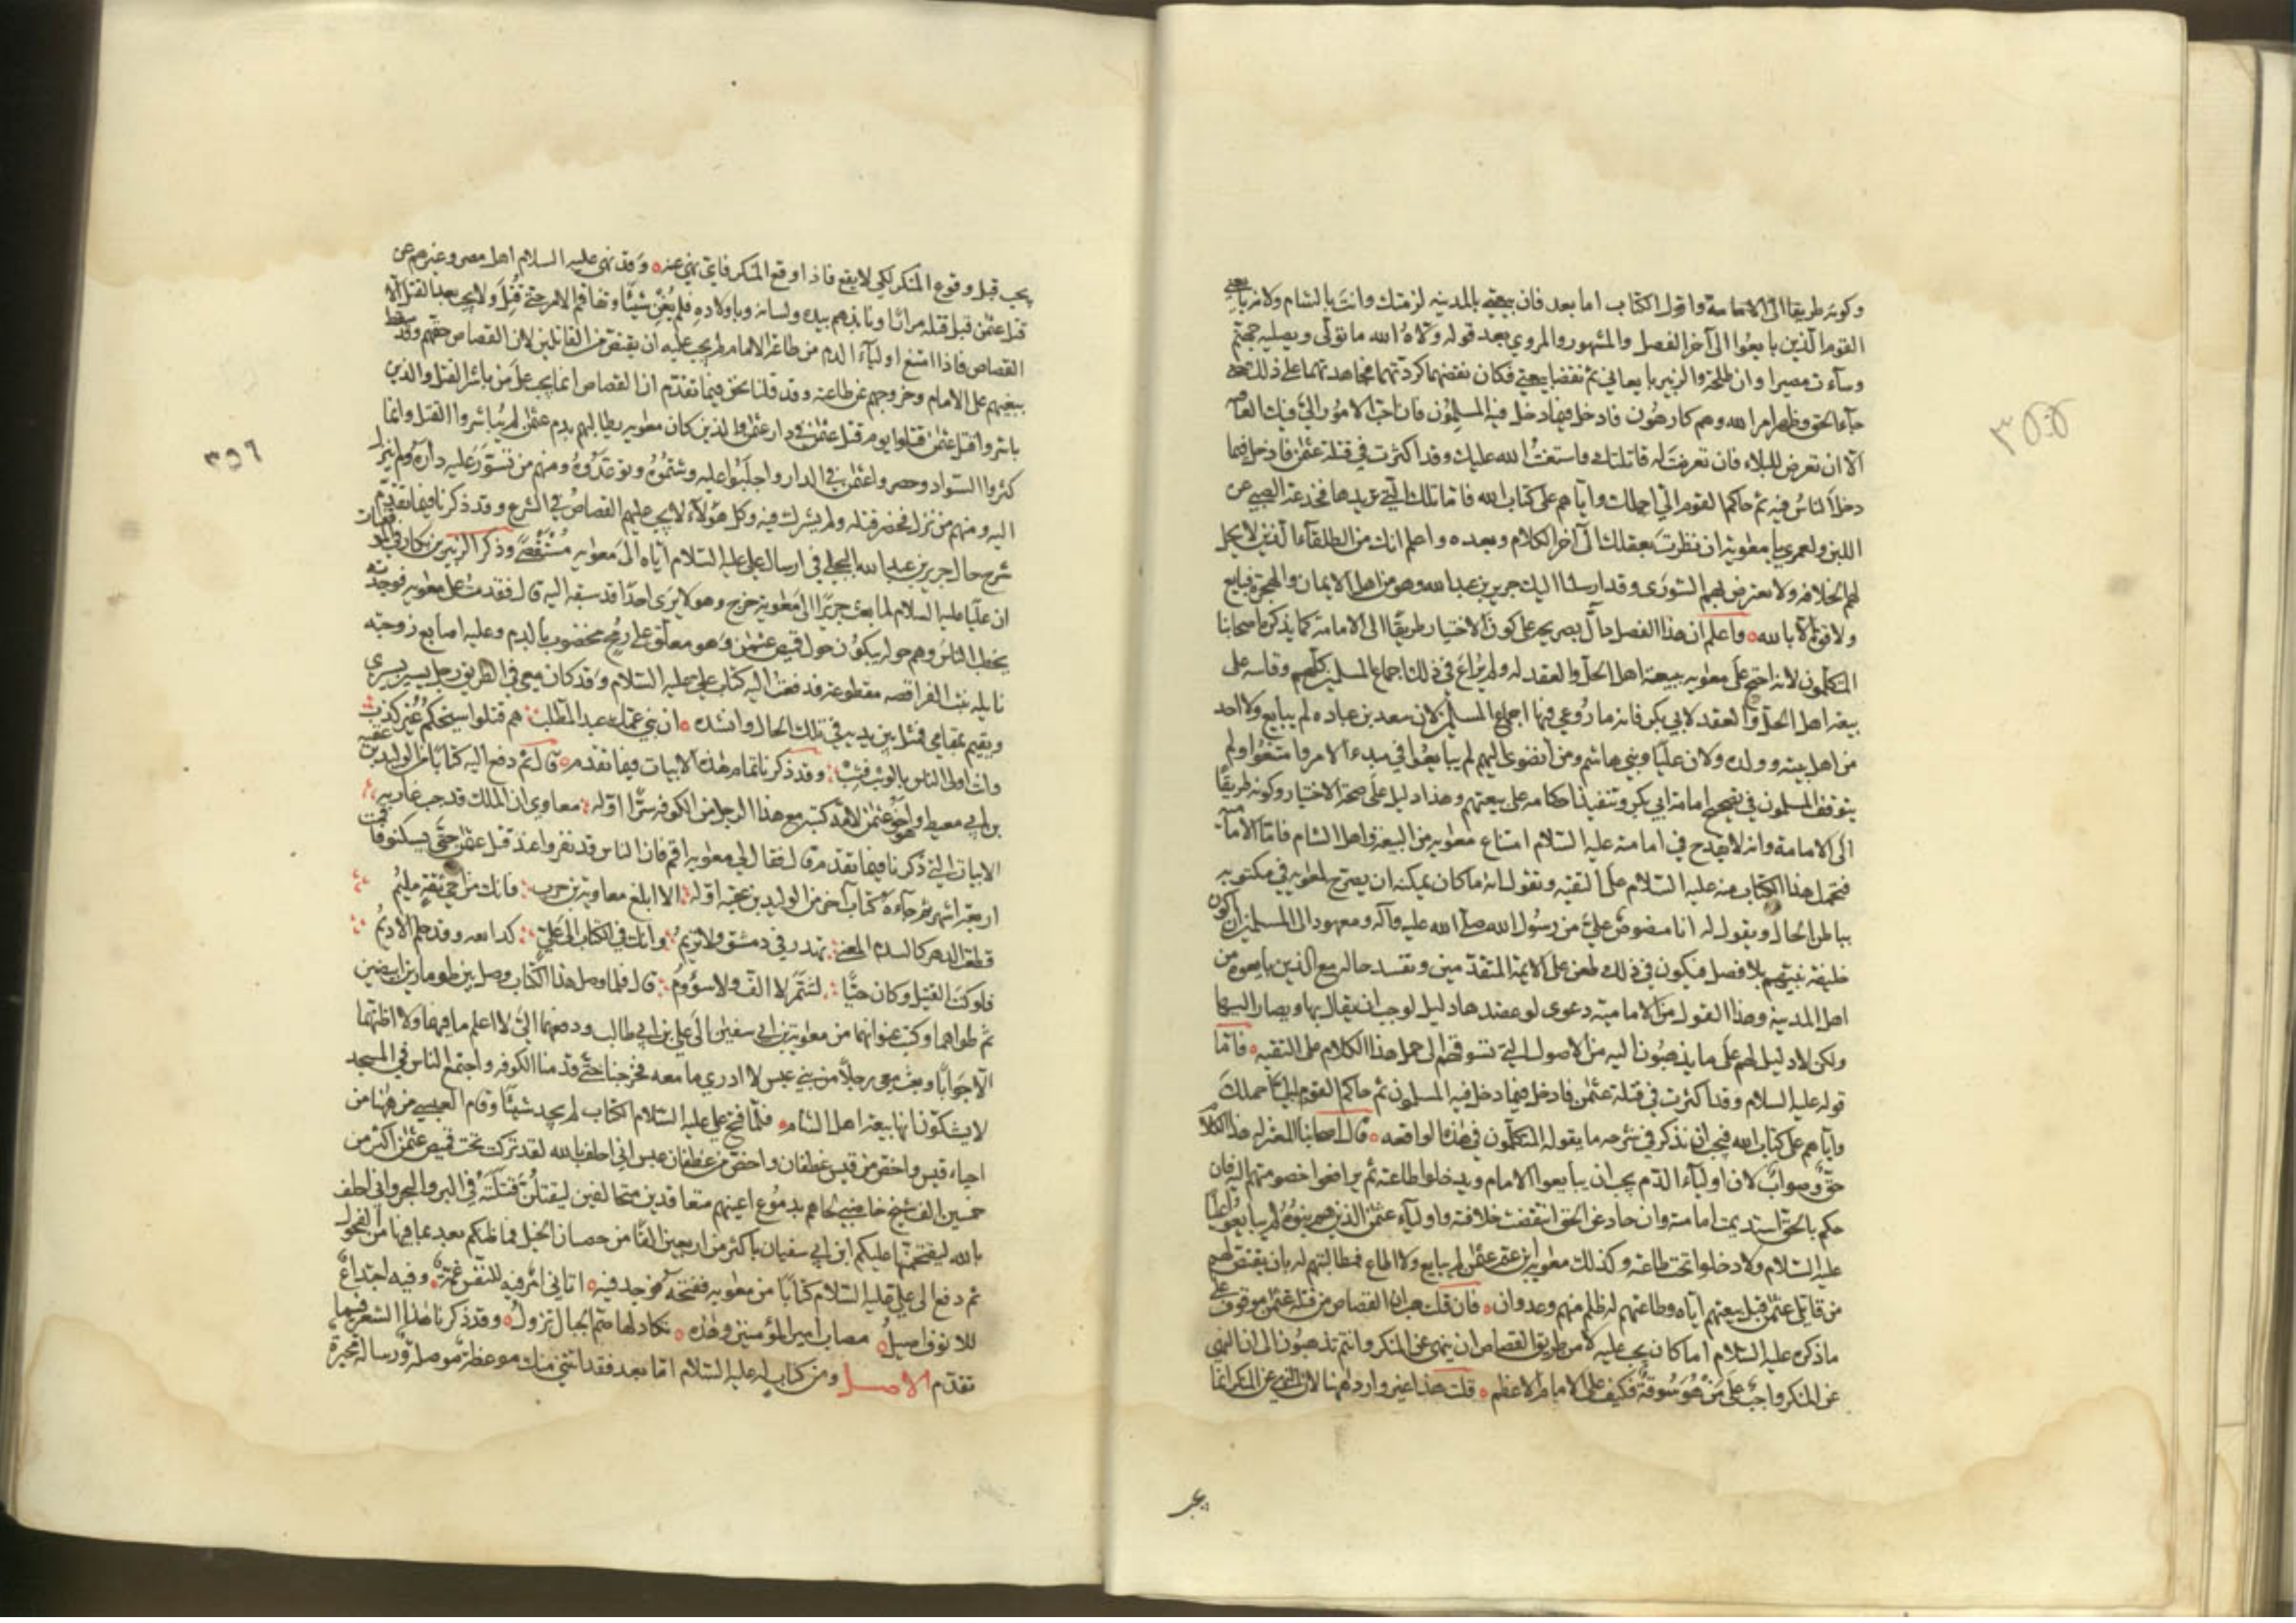 وكونه طريقا الى الامامة واول الكتاب اما بعد فان بيعتي بالمدينه لزمتك وانت بالشام لانه بايعني
القوم الذين بايعوا الى آخر الفصل والمشهور والمروي بعد قوله ولاه الله ما تولى ويصليه جهنم
وسآءت مصيرا وان طلحة والزبير بايعاني ثم نقضا بيعتي فكان نقضهما كردّتهما فجاهدتهما على ذلك حتى
جآء الحق وظهر امر الله وهم كارهون فادخل فيما دخل فيه المسلمون فان احبّ الامور اليّ فيك العافيه
الّا ان تعرض للبلاء فان تعرضت له قاتلتك واستعنت الله عليك وقد اكثرت في قتلة عثمن فادخل فيما
دخل الناس فيه ثم حاكم القوم اليّ احملك واياهم على كتاب الله فاما تلك التي تريدها فخدعة الصبي عن
اللبن ولعمري يا معوية ان نظرت بعقلك الى آخر الكلام وبعده واعلم انك من الطلقآء الذين لا يحل
لهم الخلافه ولا تعترض فيهم الشورى وقد ارسلت اليك جرير بن عبد الله وهو من اهل الايمان والهجرة فبايع
ولا قوة الا بالله واعلم ان هذا الفصل دالّ بصريحه على كون الاختيار طريقا الى الامامة كما يذكره اصحابنا
المتكلمون لانه احتج على معويه ببيعة اهل الحلّ والعقد له ولم يُراعَ في ذلك اجماع المسلمين كلهم وقاسه على
بيعة اهل الحل والعقد لابي بكر فانه ما رُوعي فيها اجماع المسلمين لان سعد بن عباده لم يبايع ولا احد
من اهل بيته وولده ولان عليا وبني هاشم ومن انضوى اليهم لم يبايعوا في مبدء الامر وامتنعوا ولم
يتوقف المسلمون في تصحيح امامة ابي بكر وتنفيذ احكامه على بيعتهم وهذا دليل على صحة الاختيار وكونه طريقا
الى الامامة وانه لا يقدح في امامته عليه السلام امتناع معويه من البيعة واهل الشام فاما الاماميه
فتحمل هذا الكتاب منه عليه السلام على التقيه وتقول انه ما كان يمكنه ان يصرّح لمعويه في مكتوبه
بباطن الحال ويقول له انا منصوص عليّ من رسول الله صلى الله عليه وآله ومعهود الى المسلمين ان اكون
خليفة فيهم بلا فصل فيكون في ذلك طعن على الائمة المتقدمين وتفسد حاله مع الذين بايعوه من
اهل المدينه وهذا القول من الاماميه دعوى لو عضدها دليل لوجب ان يقال بها ويصار اليها
ولكن لا دليل لهم على ما يذهبون اليه من الاصول التي تسوقهم الى حمل هذا الكلام على التقيه فاما
قوله عليه السلام وقد اكثرت في قتلة عثمن فادخل فيما دخل فيه المسلمون ثم حاكم القوم اليّ احملك
واياهم على كتاب الله فيجب ان نذكر في شرحه ما يقوله المتكلمون في هذه الواقعه قال اصحابنا المعتزله هذا الكلام
حقّ وصواب لان اولياء الدّم يجب ان يبايعوا الامام ويدخلوا طاعته ثم يرافعوا خصومتهم اليه فان
حكم بالحق استديمت امامته وان حاد عن الحق انتقضت خلافته واوليآء عثمن الذين هم بنوه لم يبايعوا عليا
عليه السلام ولا دخلوا تحت طاعته وكذلك معويه ابن عم عثمن لم يبايع ولا اطاع فمطالبتهم له بان يقتص لهم
من قاتلي عثمن قبل بيعتهم اياه وطاعتهم له ظلم منهم وعدوان فان قلت هب ان القصاص من قتلة عثمن موقوف على
ما ذكره عليه السلام اما كان يجب عليه لا من طريق القصاص ان ينهى عن المنكر وانتم تذهبون الى ان النهي
عن المنكر واجب على من هو سوقة فكيف على الامام الاعظم قلت هذا غير وارد ههنا لان النهي عن المنكر انما
٣٥٥
يجب قبل وقوع المنكر لكي لا يقع فاذا وقع المنكر فاي نهي عنه وقد نهى عليه السلام اهل مصر وغيرهم عن
قتل عثمن قبل قتله مرارًا ونابذهم بيده ولسانه وباولاده فلم يُغنِ شيئا وتفاقم الامر حتى قُتِل ولا يجب بعد القتل الا
القصاص فاذا امتنع اوليآء الدم من طاعة الامام لم يجب عليه ان يقتص من القاتلين لان القصاص حقهم وقد سقط
ببغيهم على الامام وخروجهم عن طاعته وقد قلنا نحن فيما تقدم ان القصاص انما يجب على من باشر القتل والذين
باشروا قتل عثمن قتلوا يوم قتل عثمن في دار عثمن والذين كان معويه يطالبهم بدم عثمن لم يُباشروا القتل وانما
كثروا السواد وحصروا عثمن في الدار واجلبوا عليه وشتموه وتوعدوه ومنهم من تسوّر عليه داره ولم ينزل
اليه ومنهم من نزل فحضر قتله ولم يشرك فيه وكل هؤلآء لا يجب عليهم القصاص في الشرع وقد ذكرنا فيما تقدم
شرح حال جرير بن عبد الله البجلي في ارسال علي عليه السلام اياه الى معويه مُستقصىً وذكر الزبير بن بكار في الموفقيات
ان عليا عليه السلام لما بعث جريرًا الى معوية خرج وهو لا يرى احدًا قد سبقه اليه قال فقدمت على معويه فوجدته
يخطب الناس وهم حوله يبكون حول قميص عثمن وهو معلّق على رمح مخضوب بالدم وعليه اصابع زوجته
نايله بنت الفرافصه مقطوعة فدفعت اليه كتاب علي عليه السلام وقد كان معي في الطريق رجل يسير بسيري
ويقيم بمقامي فمثل بين يديه في تلك الحال وانشده ان بني عمك عبد المطلب هم قتلوا شيخكم غير كذب
وانت اولى الناس بالوثب فثب وقد ذكرنا تمام هذه الابيات فيما تقدم قال ثم دفع اليه كتابا من الوليد بن عقبه
بن ابي معيط وهو اخو عثمن لامه كتبه مع هذا الرجل من الكوفه سرًّا اوّله معاوي ان الملك قد جب غاربه
الابيات التي ذكرنا فيما تقدم قال فقال لي معويه اقم فان الناس قد نفروا عند قتل عثمن حتى يسكنوا فاقمت
اربعة اشهر ثم جآءه كتاب آخر من الوليد بن عقبه اوّله الا ابلغ معاوية بن حرب فانك من اخي ثقةٍ مليم
قطعت الدهر كالسدم المعنّى تهدر في دمشق ولا تريم وانك في الكتاب الى عليّ كدابغه وقد حلم الاديم
فلو كنت القتيل وكان حيًّا لشمّر لا الف ولا سؤوم قال فلما وصل هذا الكتاب وصل بين طومارين ابيضين
ثم طواهما وكتب عنوانهما من معوية بن ابي سفين الى علي بن ابي طالب ودفعهما اليّ لا اعلم ما فيهما ولا اظنهما
الّا جوابًا وبعث معي رجلًا من بني عبس لا ادري ما معه فخرجنا حتى قدمنا الكوفه واجتمع الناس في المسجد
لا يشكّون انها بيعة اهل الشام فلمّا فتح علي عليه السلام الكتاب لم يجد شيئًا وقام العبسي من ههنا من
احياء قيس واخص من قيس غطفان واخص من غطفان عبس اني احلف بالله لقد تركت تحت قميص عثمن اكثر من
خمسين الف شيخ خاضبي لحاهم بدموع اعينهم متعاقدين متحالفين ليقتلنّ قتلته في البر والبحر واني احلف
بالله ليقتحمنّها عليكم ابن ابي سفيان باكثر من اربعين الفًا من خصيان الخيل فما ظنكم بعد بما فيها من الفحول
ثم دفع الى علي عليه السلام كتابًا من معويه ففتحه فوجد فيه اتاني امر فيه للنفس غمة وفيه اجتداع
للانوف اصيل مصاب امير المؤمنين وهذه تكاد لها صُمّ الجبال تزول وقد ذكرنا هذا الشعر فيما
تقدم الاصل ومن كتاب له عليه السلام اما بعد فقد اتتني منك موعظة موصلة ورسالة محبرة
٣٥٦